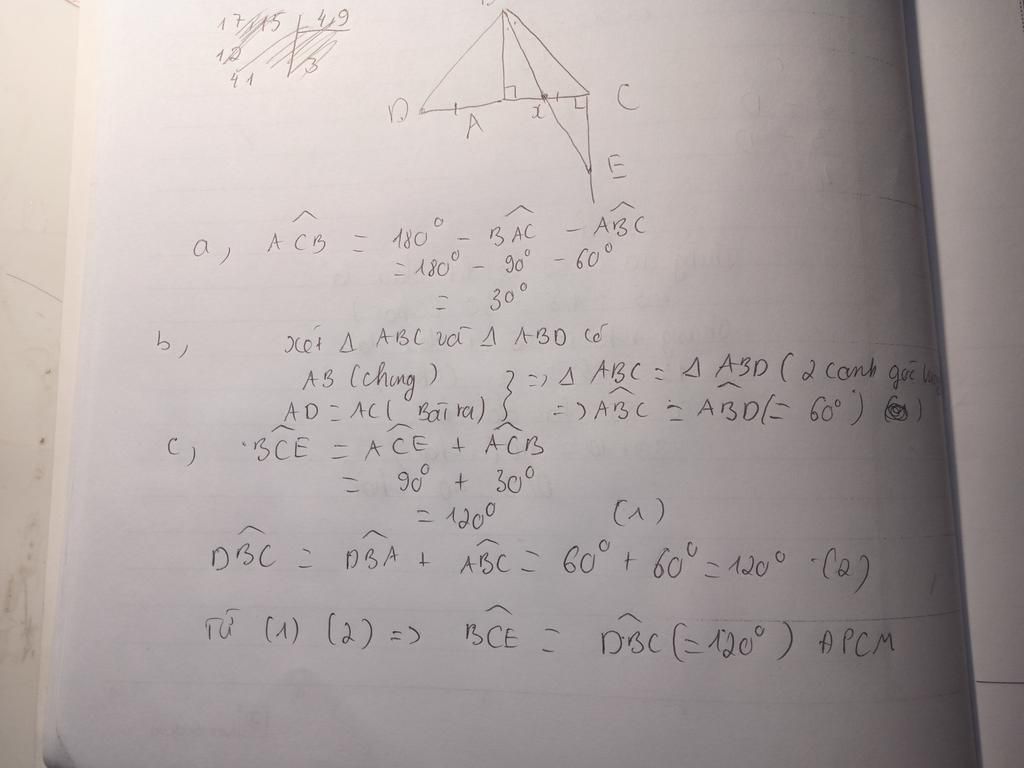 17/15 4,9
12
41 3
D A x C
E
a, ACB = 180° - BAC - ABC
= 180° - 90° - 60°
= 30°
b, xét Δ ABC và Δ ABD có
AB (chung) } => Δ ABC = Δ ABD ( 2 cạnh góc
AD = AC ( Bài ra) => ABC = ABD (= 60° )
c, BCE = ACE + ACB
= 90° + 30°
= 120° (1)
DBC = DBA + ABC = 60° + 60° = 120° (2)
Từ (1) (2) => BCE = DBC (=120°) APCM